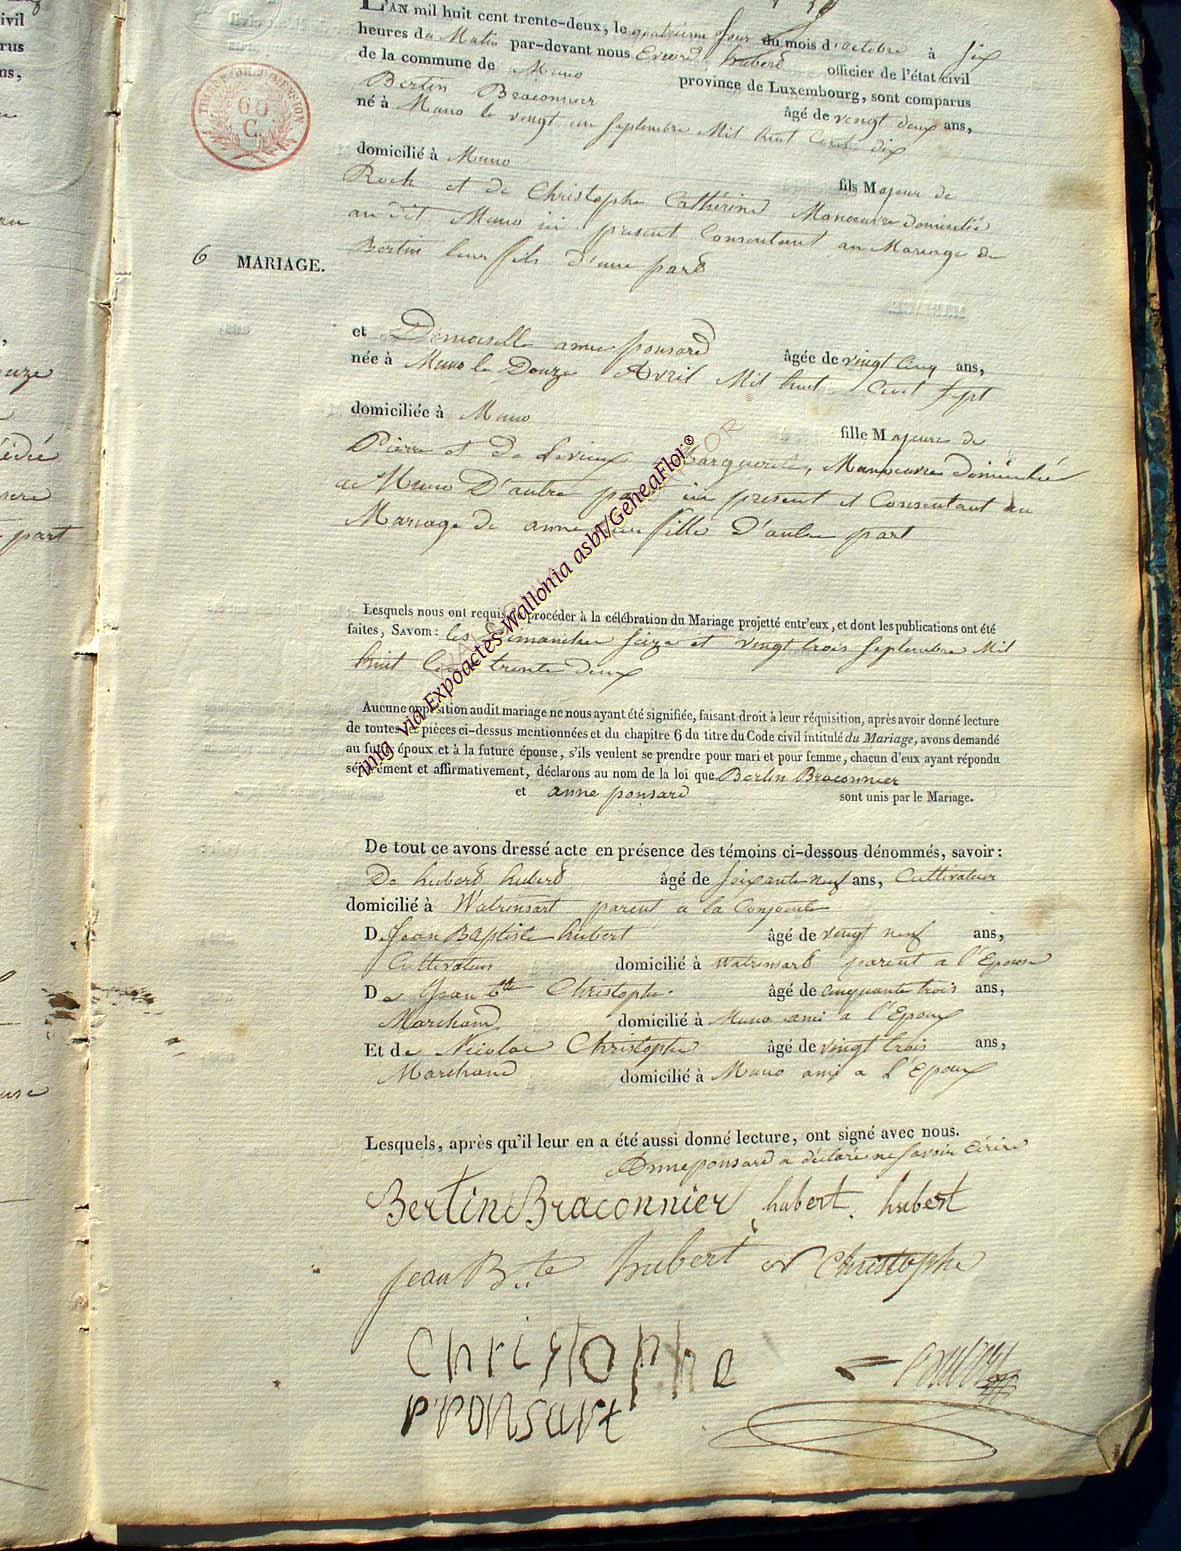 ivil
rus
ns,
uze
part
L'AN mil huit cent trente-deux, le quatrieme Jour du mois d'octobre à six
heures du Matin par-devant nous hubert officier de l'état civil
de la commune de Muno province de Luxembourg, sont comparus
Bertin Braconnier âgé de vingt deux ans,
né à Muno le vingt un Septembre Mil huit Cent dix
domicilié à Muno fils Majeur de
Roch et de Christophe Cathérine Manoeuvre domicilié
au dit Muno ici present Consentant au Mariage de
Bertin leur fils d'une part
6 MARIAGE.
TIMBRE DE DIMENSION
60
C.
et Demoiselle anne ponsard âgée de vingt Cinq ans,
née à Muno le Douze Avril Mil huit Cent Sept
domiciliée à Muno fille Majeure de
Pierre et de Marguerite, Manoeuvre domicilié
a Muno D'autre part ici present et Consentant au
Mariage de anne leur fille D'autre part
img via Expoactes-Wallonia asbl/GeneaFlor©
Lesquels nous ont requis de procéder à la célébration du Mariage projetté entr'eux, et dont les publications ont été
faites, SAVOIR: les Dimanches Seize et vingt trois Septembre Mil
huit Cent trente deux
Aucune opposition audit mariage ne nous ayant été signifiée, faisant droit à leur réquisition, après avoir donné lecture
de toutes les pièces ci-dessus mentionnées et du chapitre 6 du titre du Code civil intitulé du Mariage, avons demandé
au futur époux et à la future épouse, s'ils veulent se prendre pour mari et pour femme, chacun d'eux ayant répondu
séparément et affirmativement, déclarons au nom de la loi que Bertin Braconnier
et anne ponsard sont unis par le Mariage.
De tout ce avons dressé acte en présence des témoins ci-dessous dénommés, savoir:
De hubert hubert âgé de soixante neuf ans, Cultivateur
domicilié à Watrinsart parent a la Conjointe
De Jean Baptiste hubert âgé de vingt neuf ans,
Cultivateur domicilié à Watrinsard parent a l'Epouse
De Jean Bte Christophe âgé de cinquante trois ans,
Marchand domicilié à Muno ami a l'Epoux
Et de Nicolas Christophe âgé de vingt trois ans,
Marchand domicilié à Muno ami a l'Epoux
Lesquels, après qu'il leur en a été aussi donné lecture, ont signé avec nous.
Anne ponsard a déclaré ne savoir écrire
Bertin Braconnier hubert hubert
Jean Bte hubert N Christophe
Christophe
P PONSART